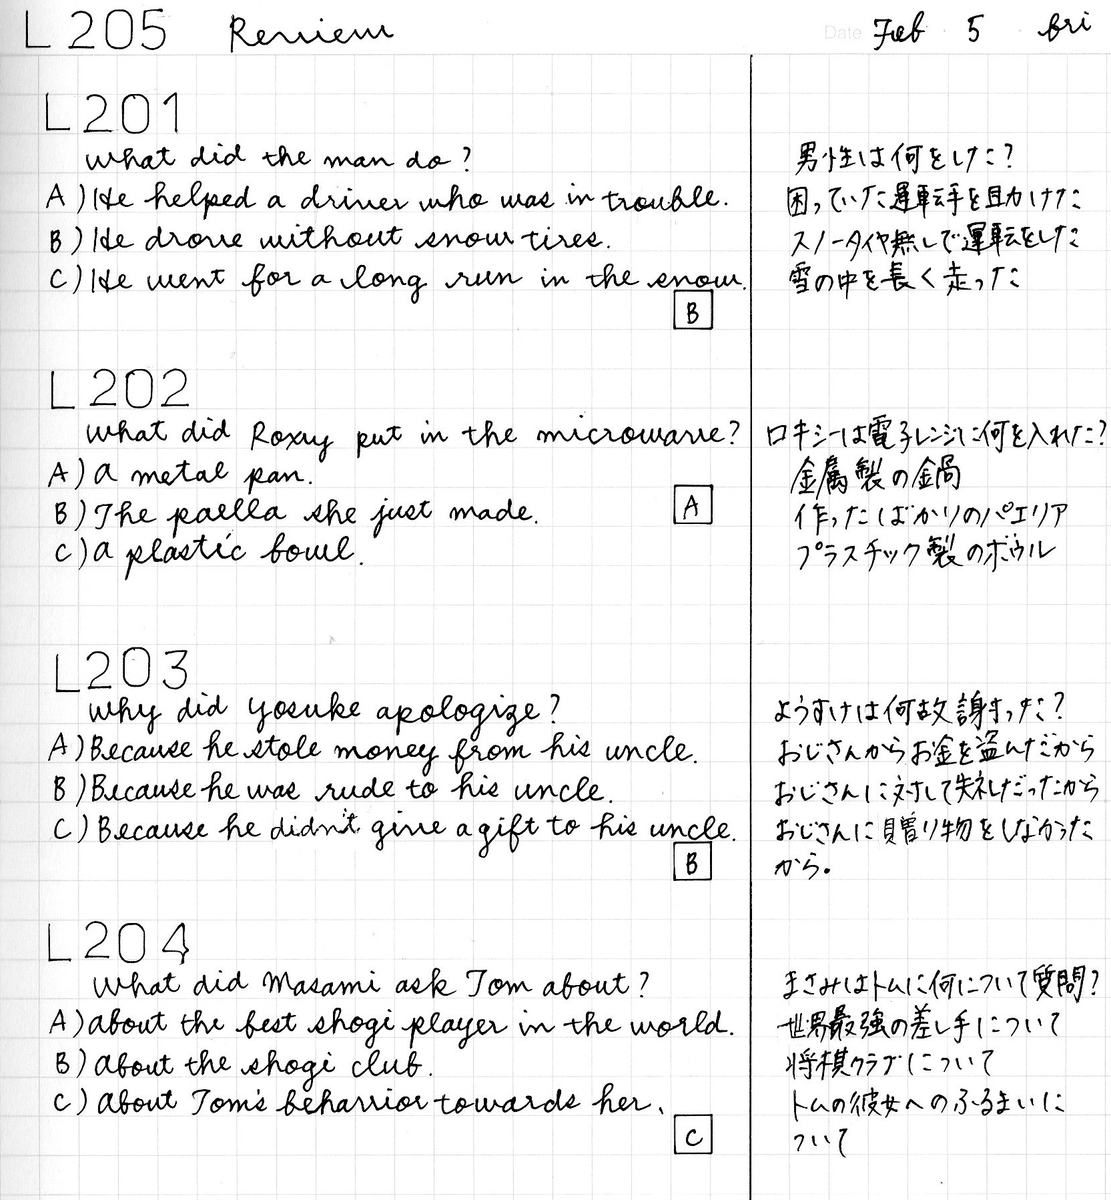 L205 Review Date Feb 5 fri
L201
What did the man do?
男性は何をした?
A) He helped a driver who was in trouble.
困っていた運転手を助けた
B) He drove without snow tires.
スノータイヤ無しで運転をした
C) He went for a long run in the snow.
雪の中を長く走った
B
L202
What did Roxxy put in the microwave?
ロキシーは電子レンジに何を入れた?
A) a metal pan.
金属製の金鍋
B) The paella she just made.
A
作ったばかりのパエリア
C) a plastic bowl.
プラスチック製のボウル
L203
Why did Yosuke apologize?
ようすけは何故謝まった?
A) Because he stole money from his uncle.
おじさんからお金を盗んだから
B) Because he was rude to his uncle.
おじさんに対して失礼だったから
C) Because he didn't give a gift to his uncle.
おじさんに贈り物をしなかった
B
から。
L204
What did Masami ask Tom about?
まさみはトムに何について質問?
A) about the best shogi player in the world.
世界最強の差し手について
B) about the shogi club.
将棋クラブについて
C) about Tom's behavior towards her.
トムの彼女へのふるまいに
C
ついて